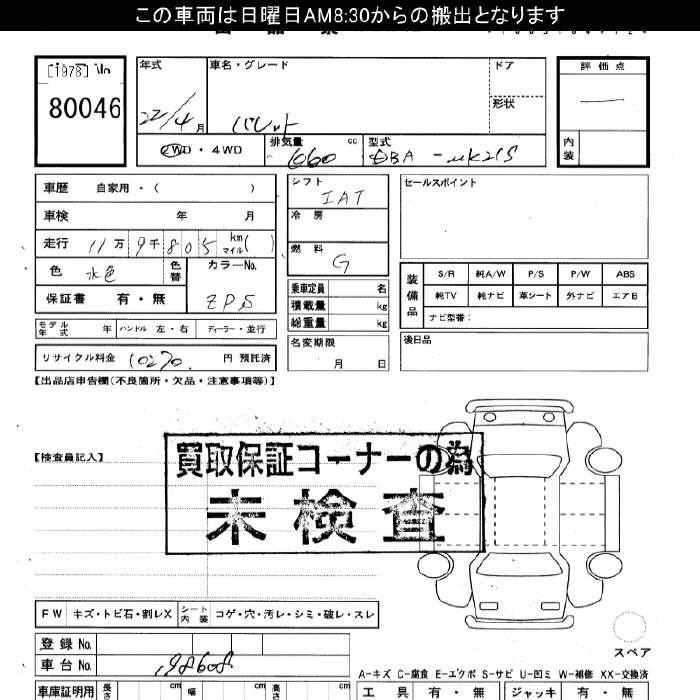 この車両は日曜日AM8:30からの搬出となります
[1978] No
80046
年式
22/4月
車名・グレード
パレット
ドア
形状
評価点
内装
2WD・4WD
排気量
660 cc
型式
DBA-MK21S
車歴 自家用・( )
車検 年 月
走行 11万9千805 km マイル( )
色 水色
色替
カラーNo.
ZPS
保証書 有・無
モデル年式 年 ハンドル 左・右 ディーラー・並行
リサイクル料金 10270 円 預託済
シフト
IAT
冷房
燃料
G
乗車定員 名
積載量 kg
総重量 kg
名変期限
月 日
セールスポイント
装備品
S/R 純A/W P/S P/W ABS
純TV 純ナビ 革シート 外ナビ エアB
ナビ型番:
後日品
【出品店申告欄(不良箇所・欠品・注意事項等)】
【検査員記入】
買取保証コーナーの為
未検査
FW キズ・トビ石・割レX シート内装 コゲ・穴・汚レ・シミ・破レ・スレ
スペア
登録No.
車台No. 198608
A-キズ C-腐食 E-エクボ S-サビ U-凹ミ W-補修 XX-交換済
車庫証明用 長さ cm 幅 cm 高さ cm
工具 有・無 ジャッキ 有・無